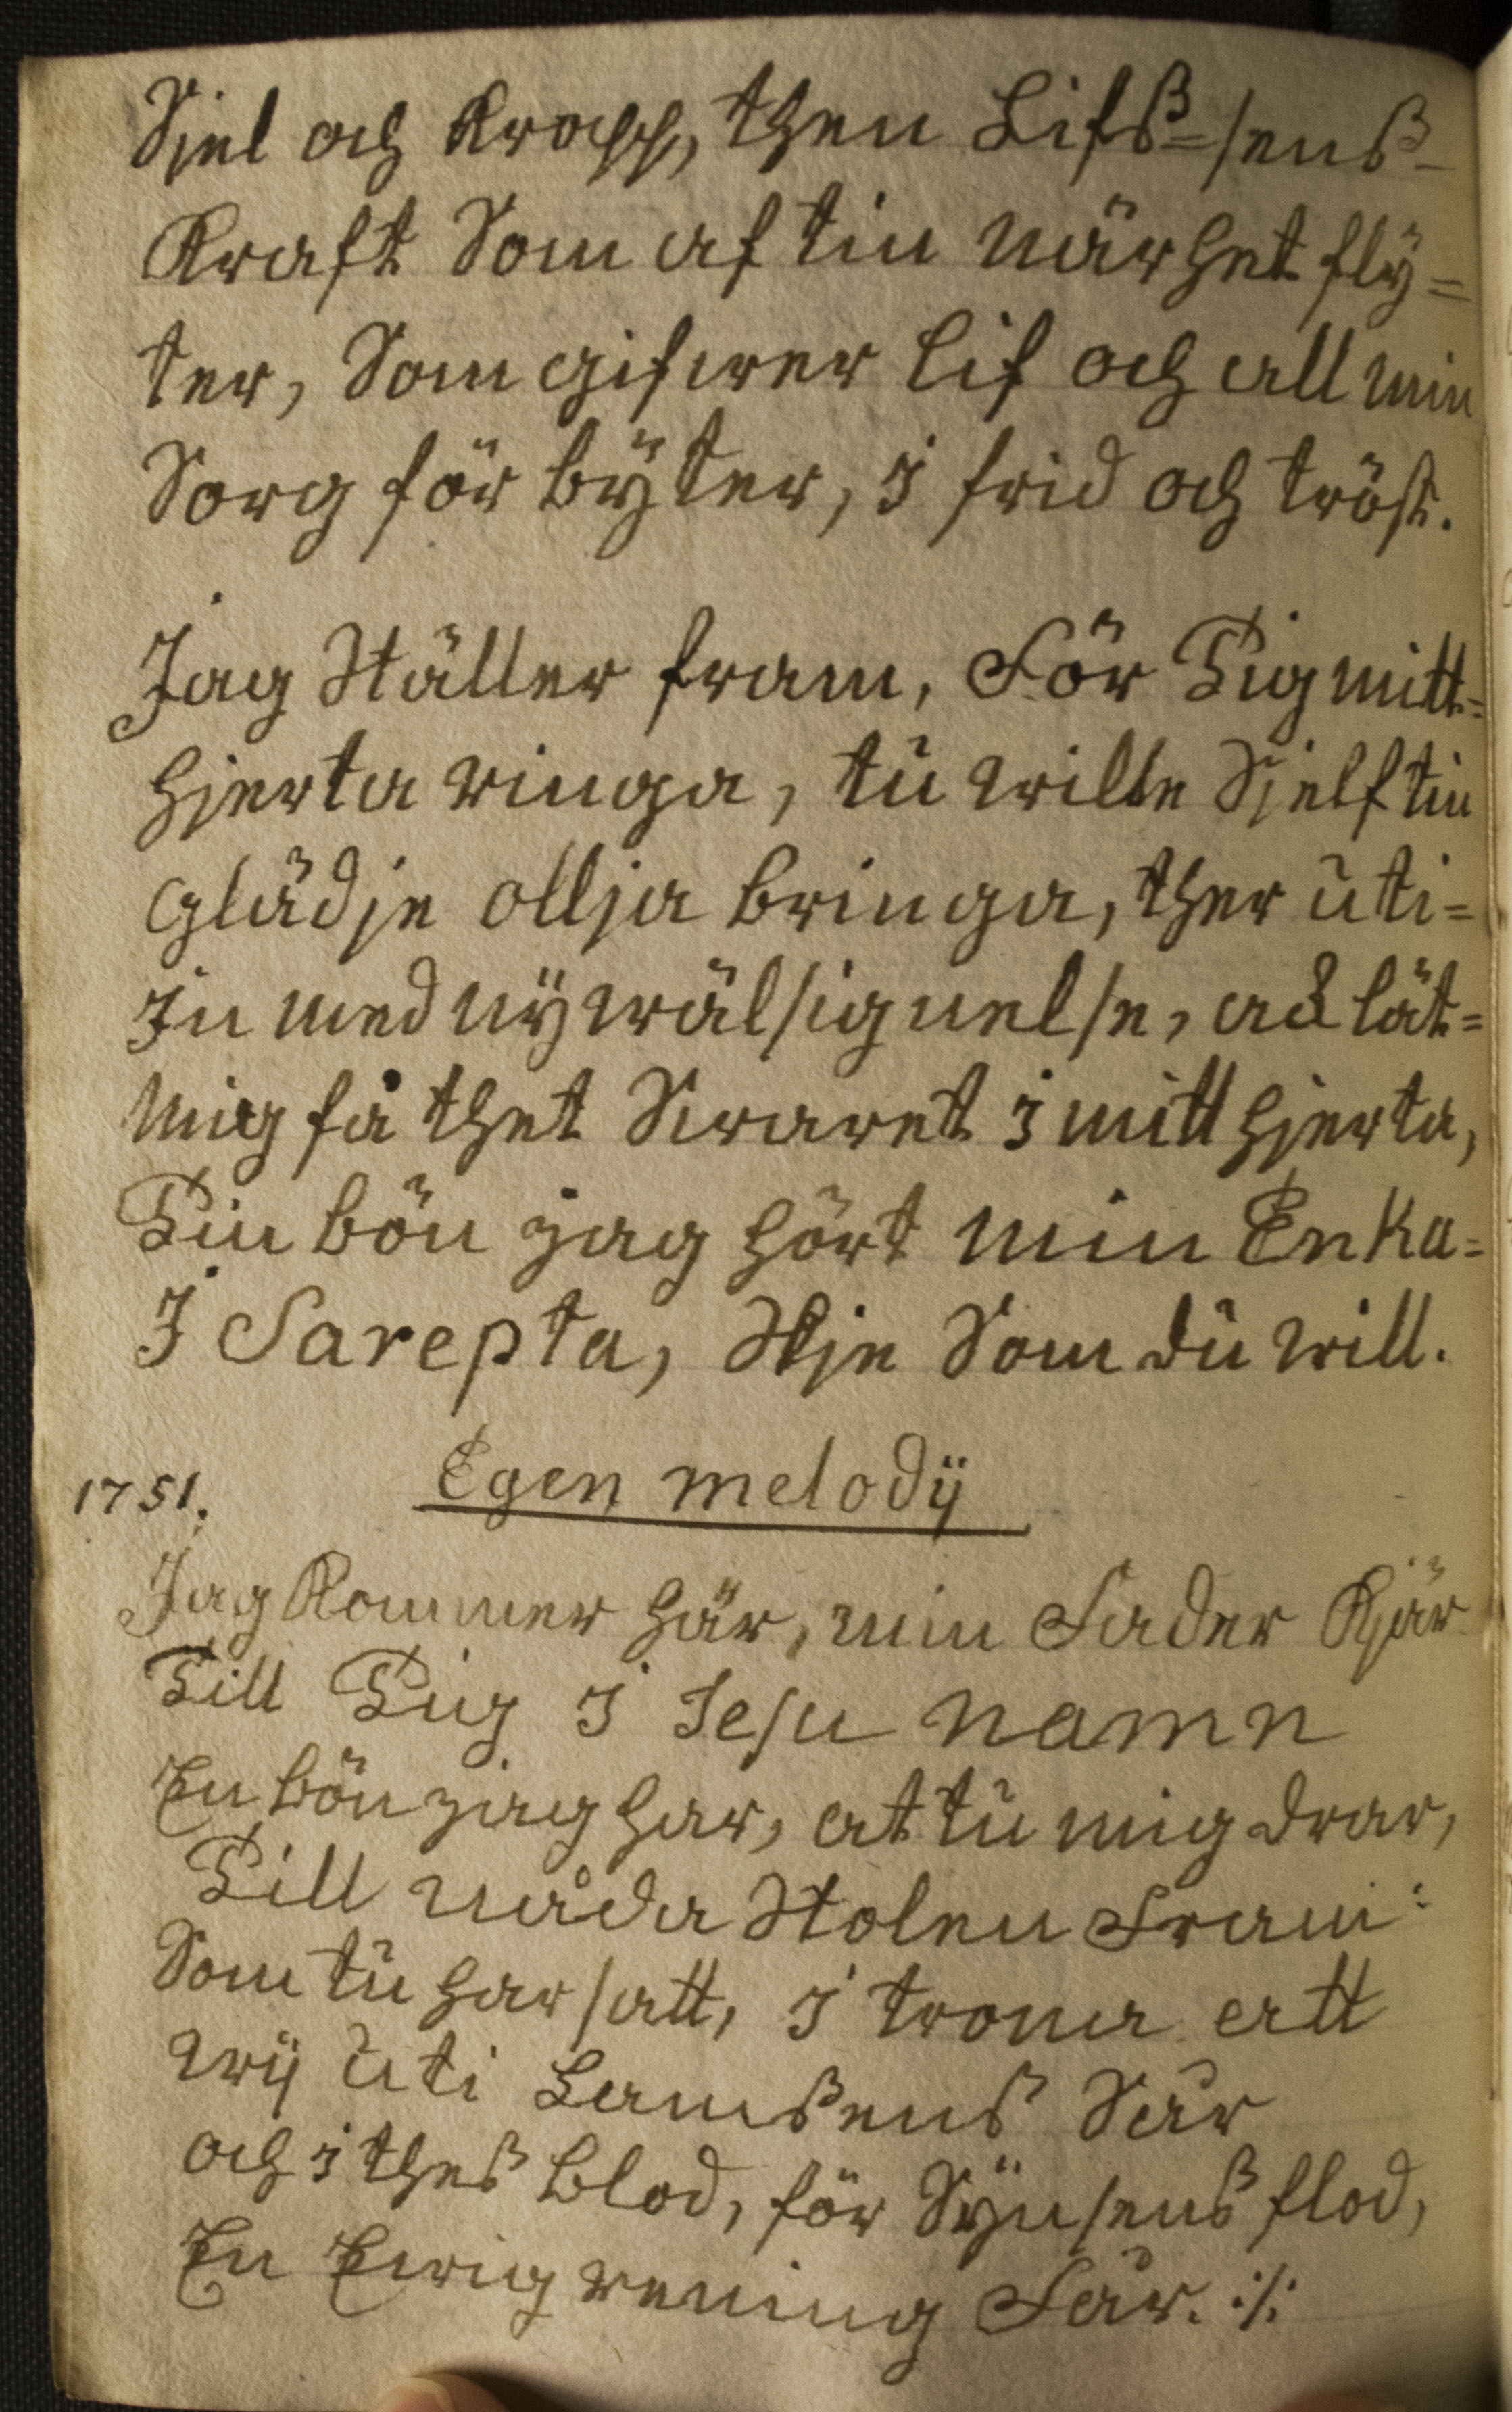 Sjel och Kropp, then Lifß=senß-
Kraft Som af tin närhet flÿ=
ter, Som gifwer Lif och all min
Sorg för bÿter, i frid och tröst.
Jag Ställer fram, För Tig mitt=
hjerta ringa, tŭ wille Sjelf tin
glädje ollja bringa, ther ŭti=
In med nÿ wälsignelse, ack låt=
mig få thet Swaret i mitt hjerta,
Tin bön jag hört min Enka=
I Sarepta, Skje Som dŭ will.
1751. Egen melodÿ
Jag Kommer här, min Fader Kjär
Till Tig I Jesu namn
En bön jag har, at tŭ mig drar,
Till nåda Stolen Fram:
Som tŭ har satt, i trona att
wÿ ŭti Lamßenß Sår
och i theß blod, för Sÿnsenß flod,
En Ewig rening Får. :/: